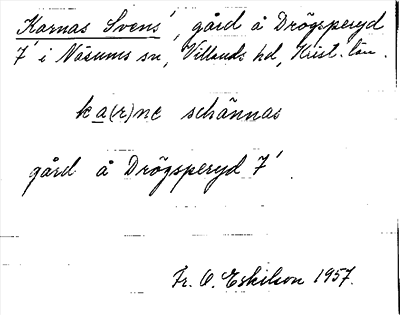 Karnas Svens', gård å Drögsperyd
7' i Näsums sn, Villands hd, Krist. län.
ka(r)ne schännas
gård å Drögsperyd 7'.
Fr. O. Eskilson 1957.